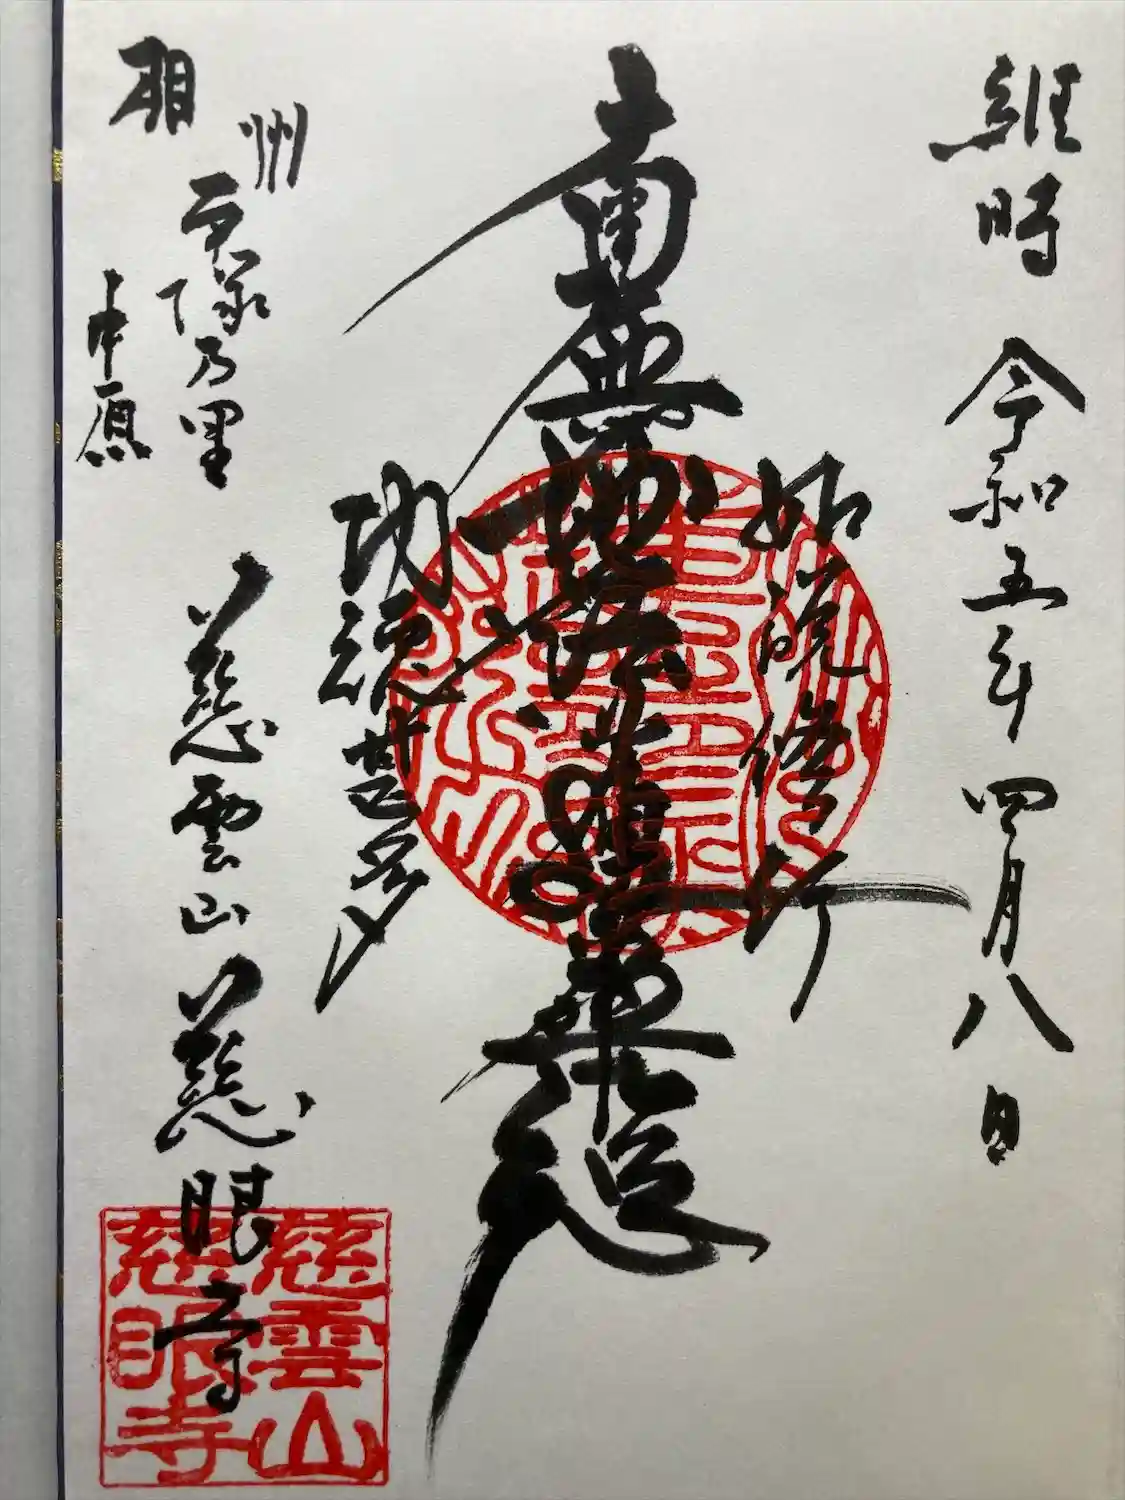 維時 令和五年 四月八日
如説修行
南無妙法蓮華経
功徳甚多
慈雲山 慈眼寺
慈雲山
慈眼寺